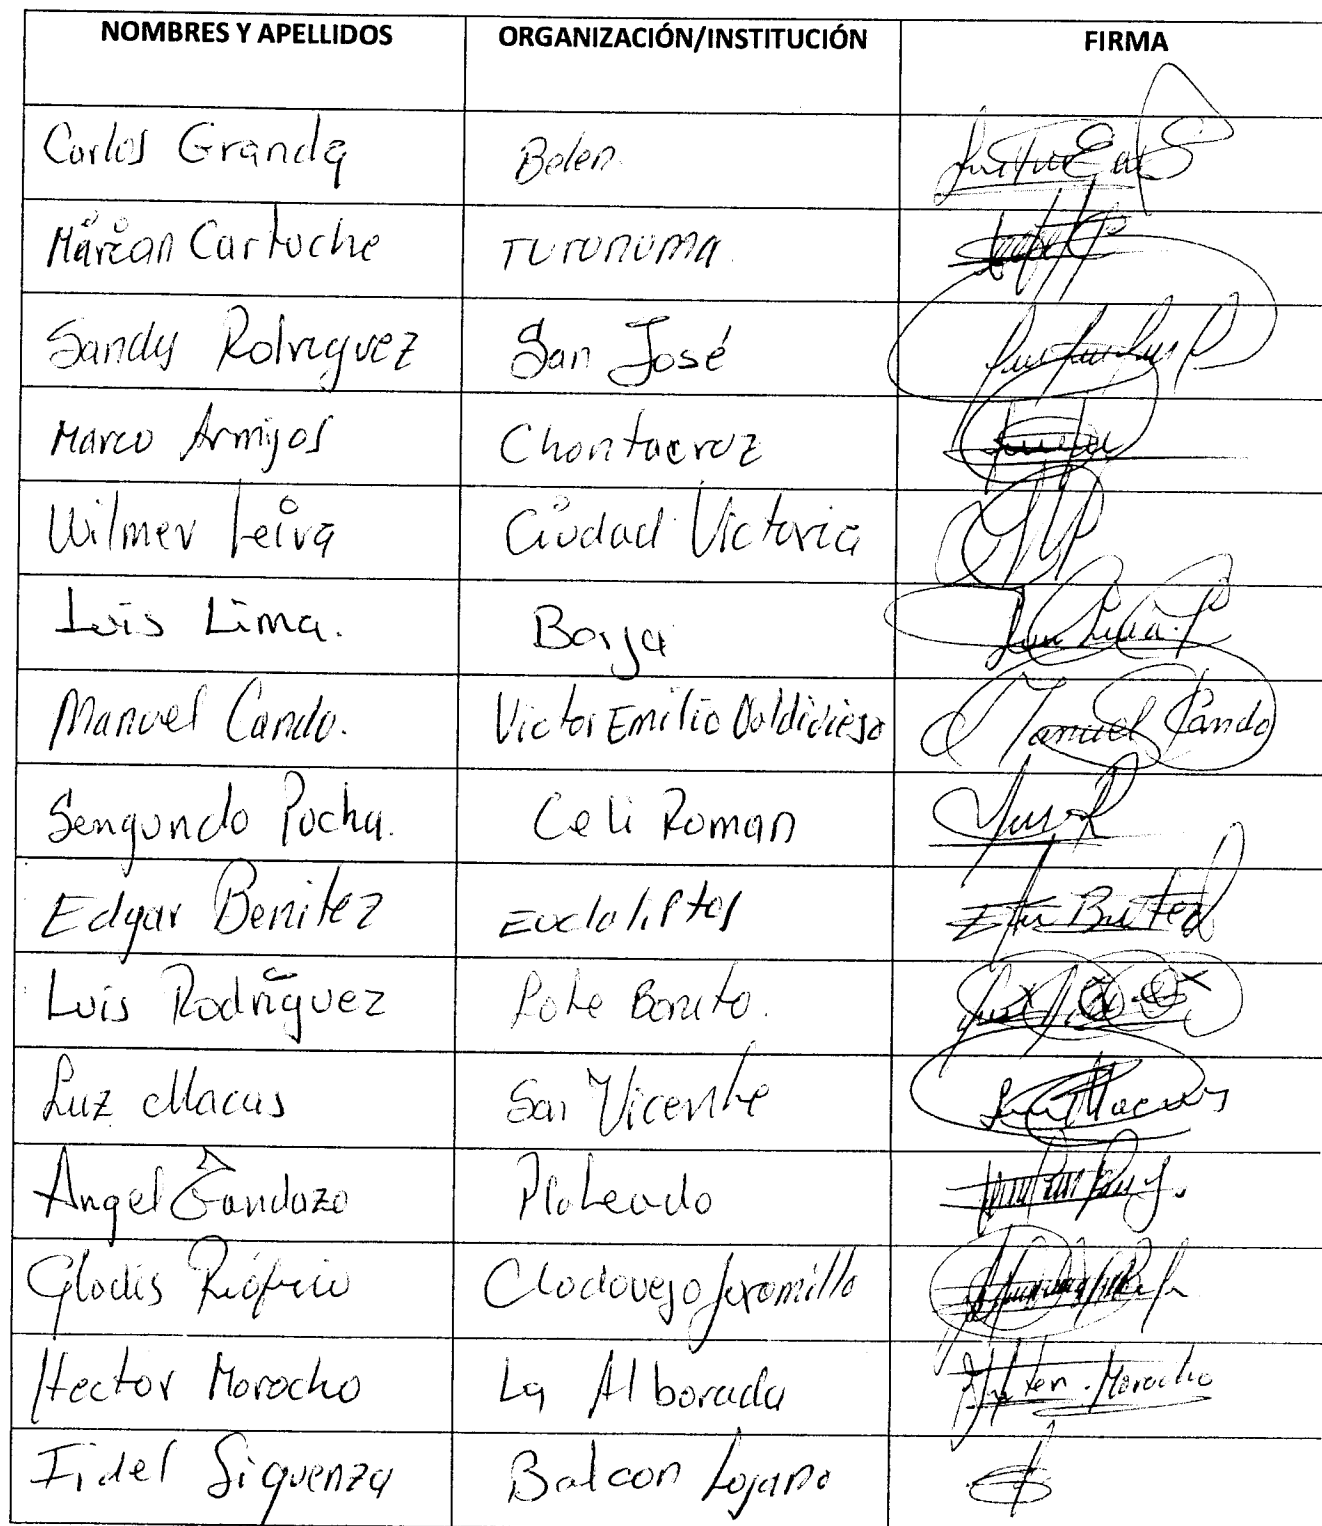 NOMBRES Y APELLIDOS ORGANIZACIÓN/INSTITUCIÓN FIRMA
Carlos Granda Belen
Marcan Cartuche TURUNUMA
Sandy Rodriguez San José
Marco Armijos Chontacruz
Wilmer Leiva Ciudad Victoria
Luis Lima. Borja
Manuel Cando. Victor Emilio Valdivieso Manuel Cando
Sengundo Pucha. Celi Roman
Edgar Benitez Eucaliptos
Luis Rodriguez Pote Bonito.
Luz Macas San Vicente
Angel Gandazo Plateado
Gladis Riófrio Clodovejo Jaramillo
Hector Morocho La Alborada Morocho
Fidel Siguenza Balcon Lojano